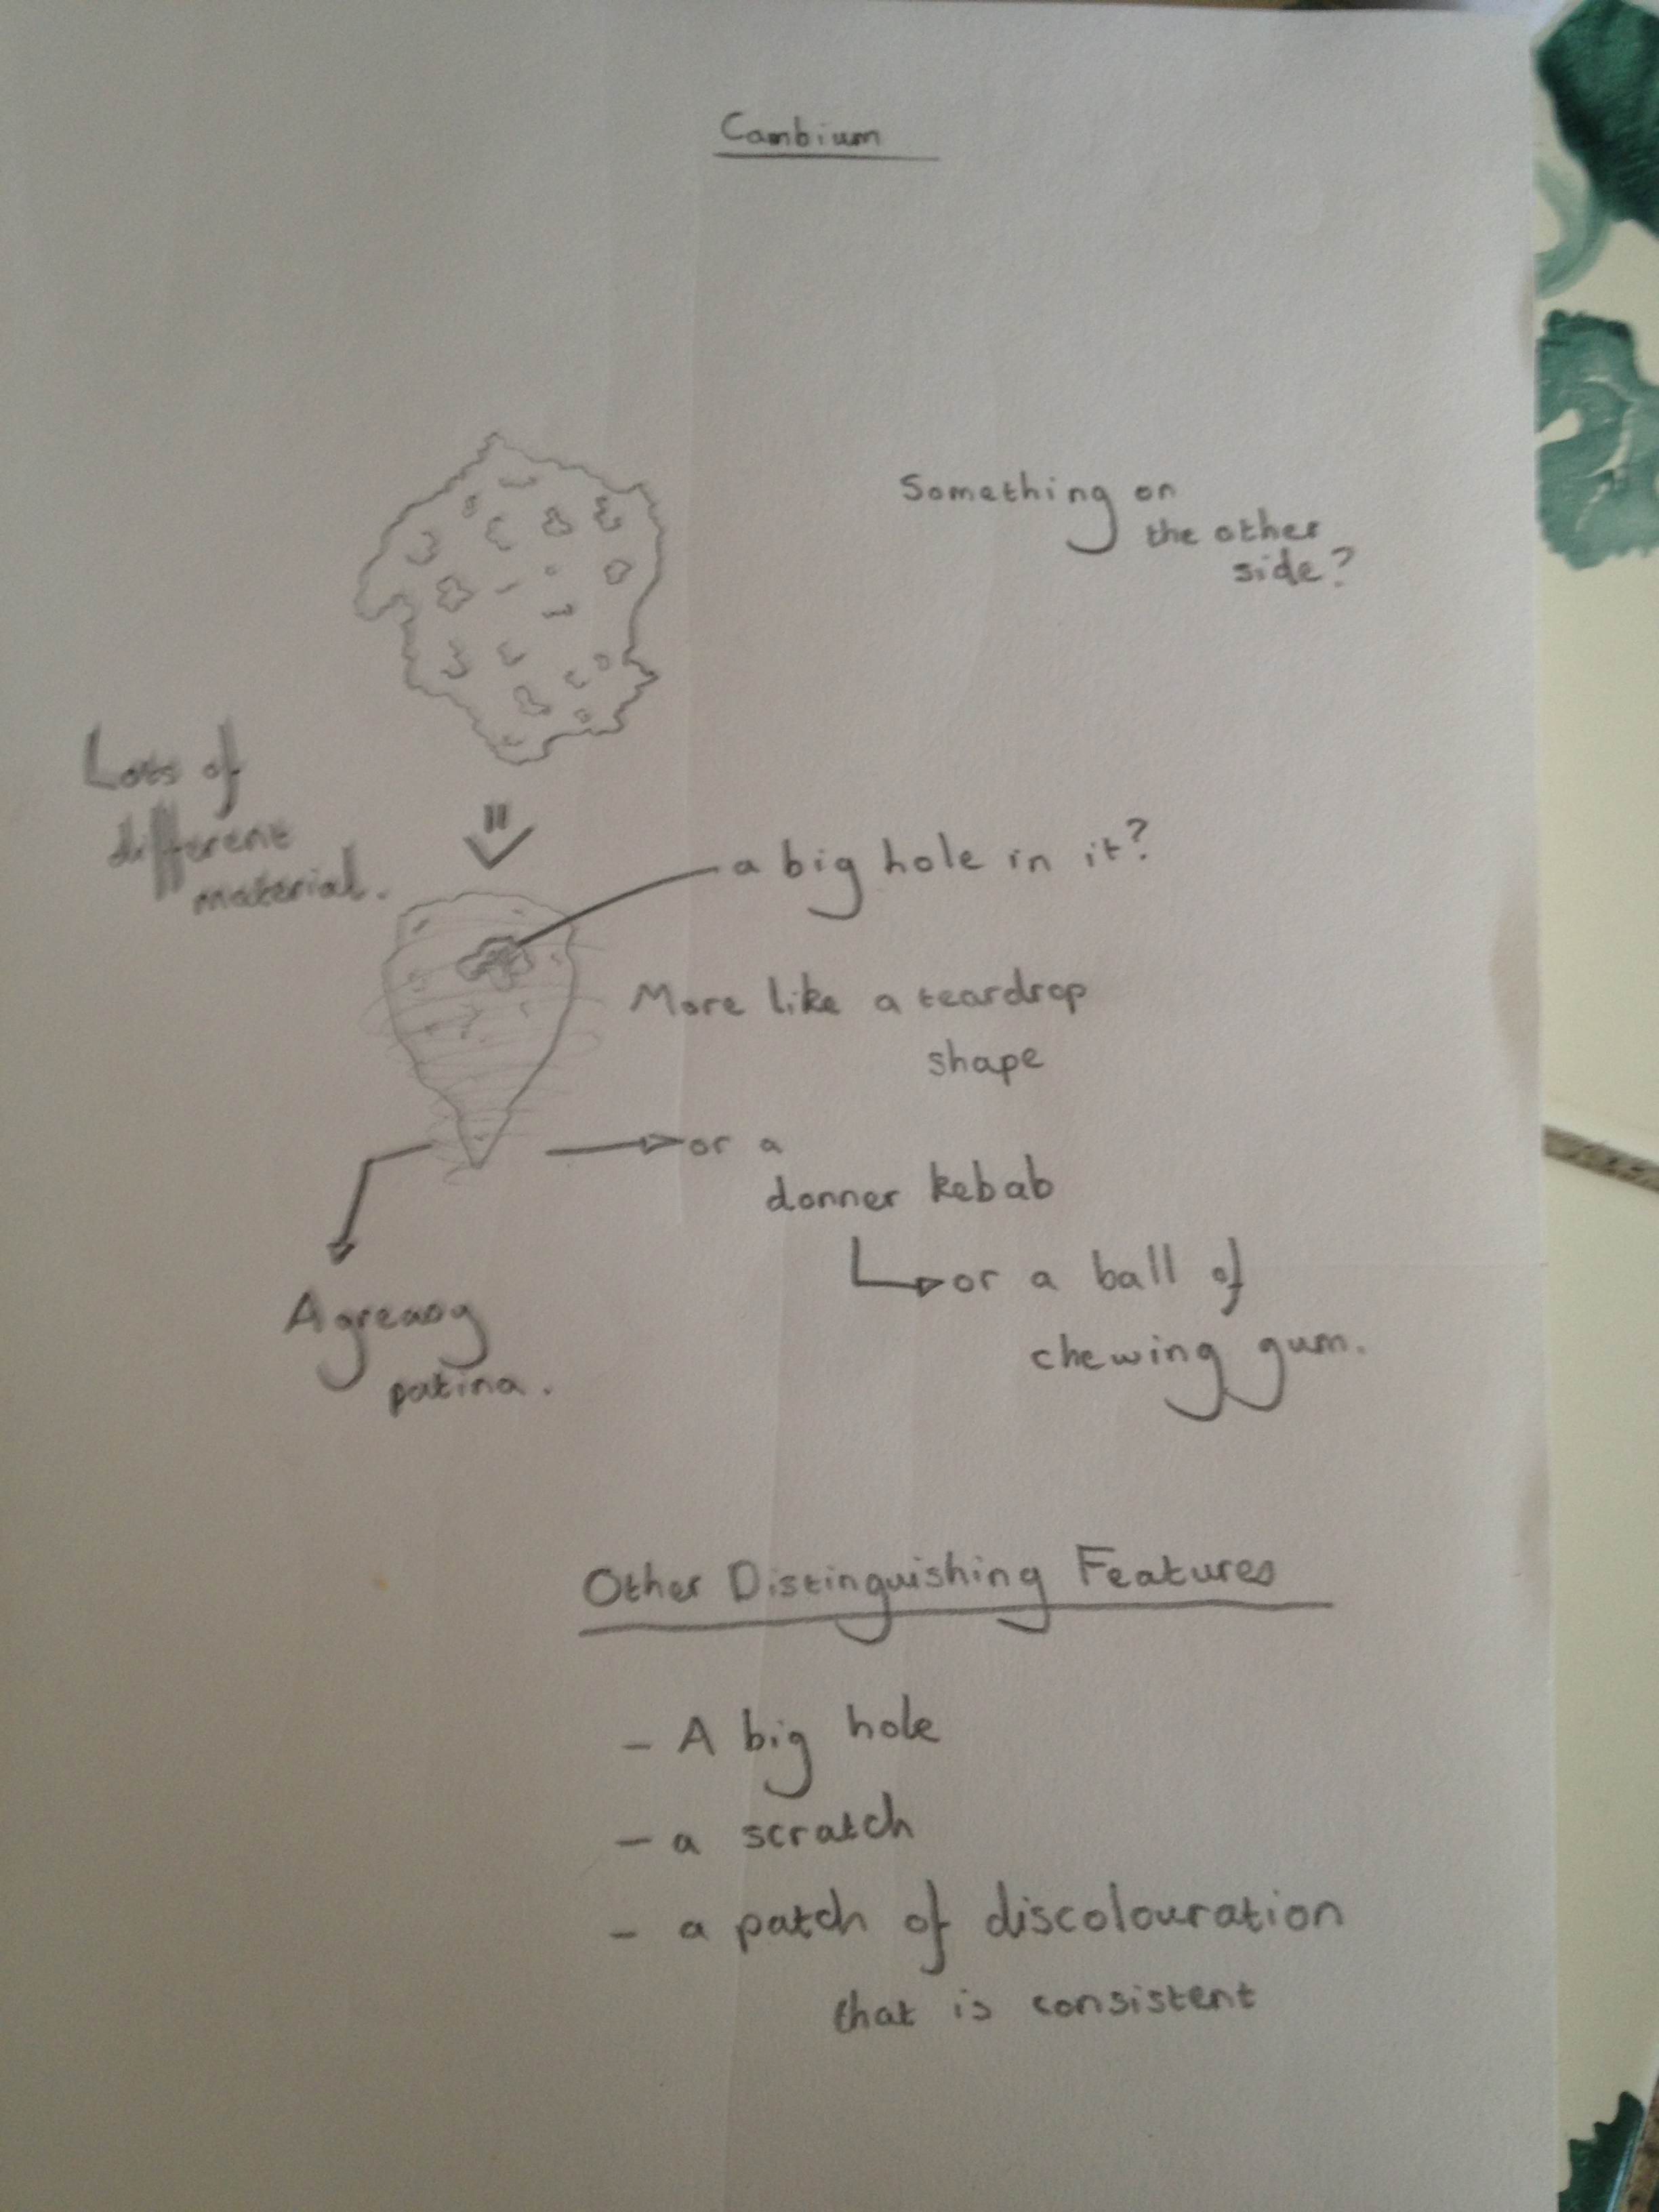 Cambium
Something on
the other
side?
Lots of
different
material.
a big hole in it?
More like a teardrop
shape
or a
donner kebab
or a ball of
chewing gum.
A greasy
patina.
Other Distinguishing Features
- A big hole
- a scratch
- a patch of discolouration
that is consistent